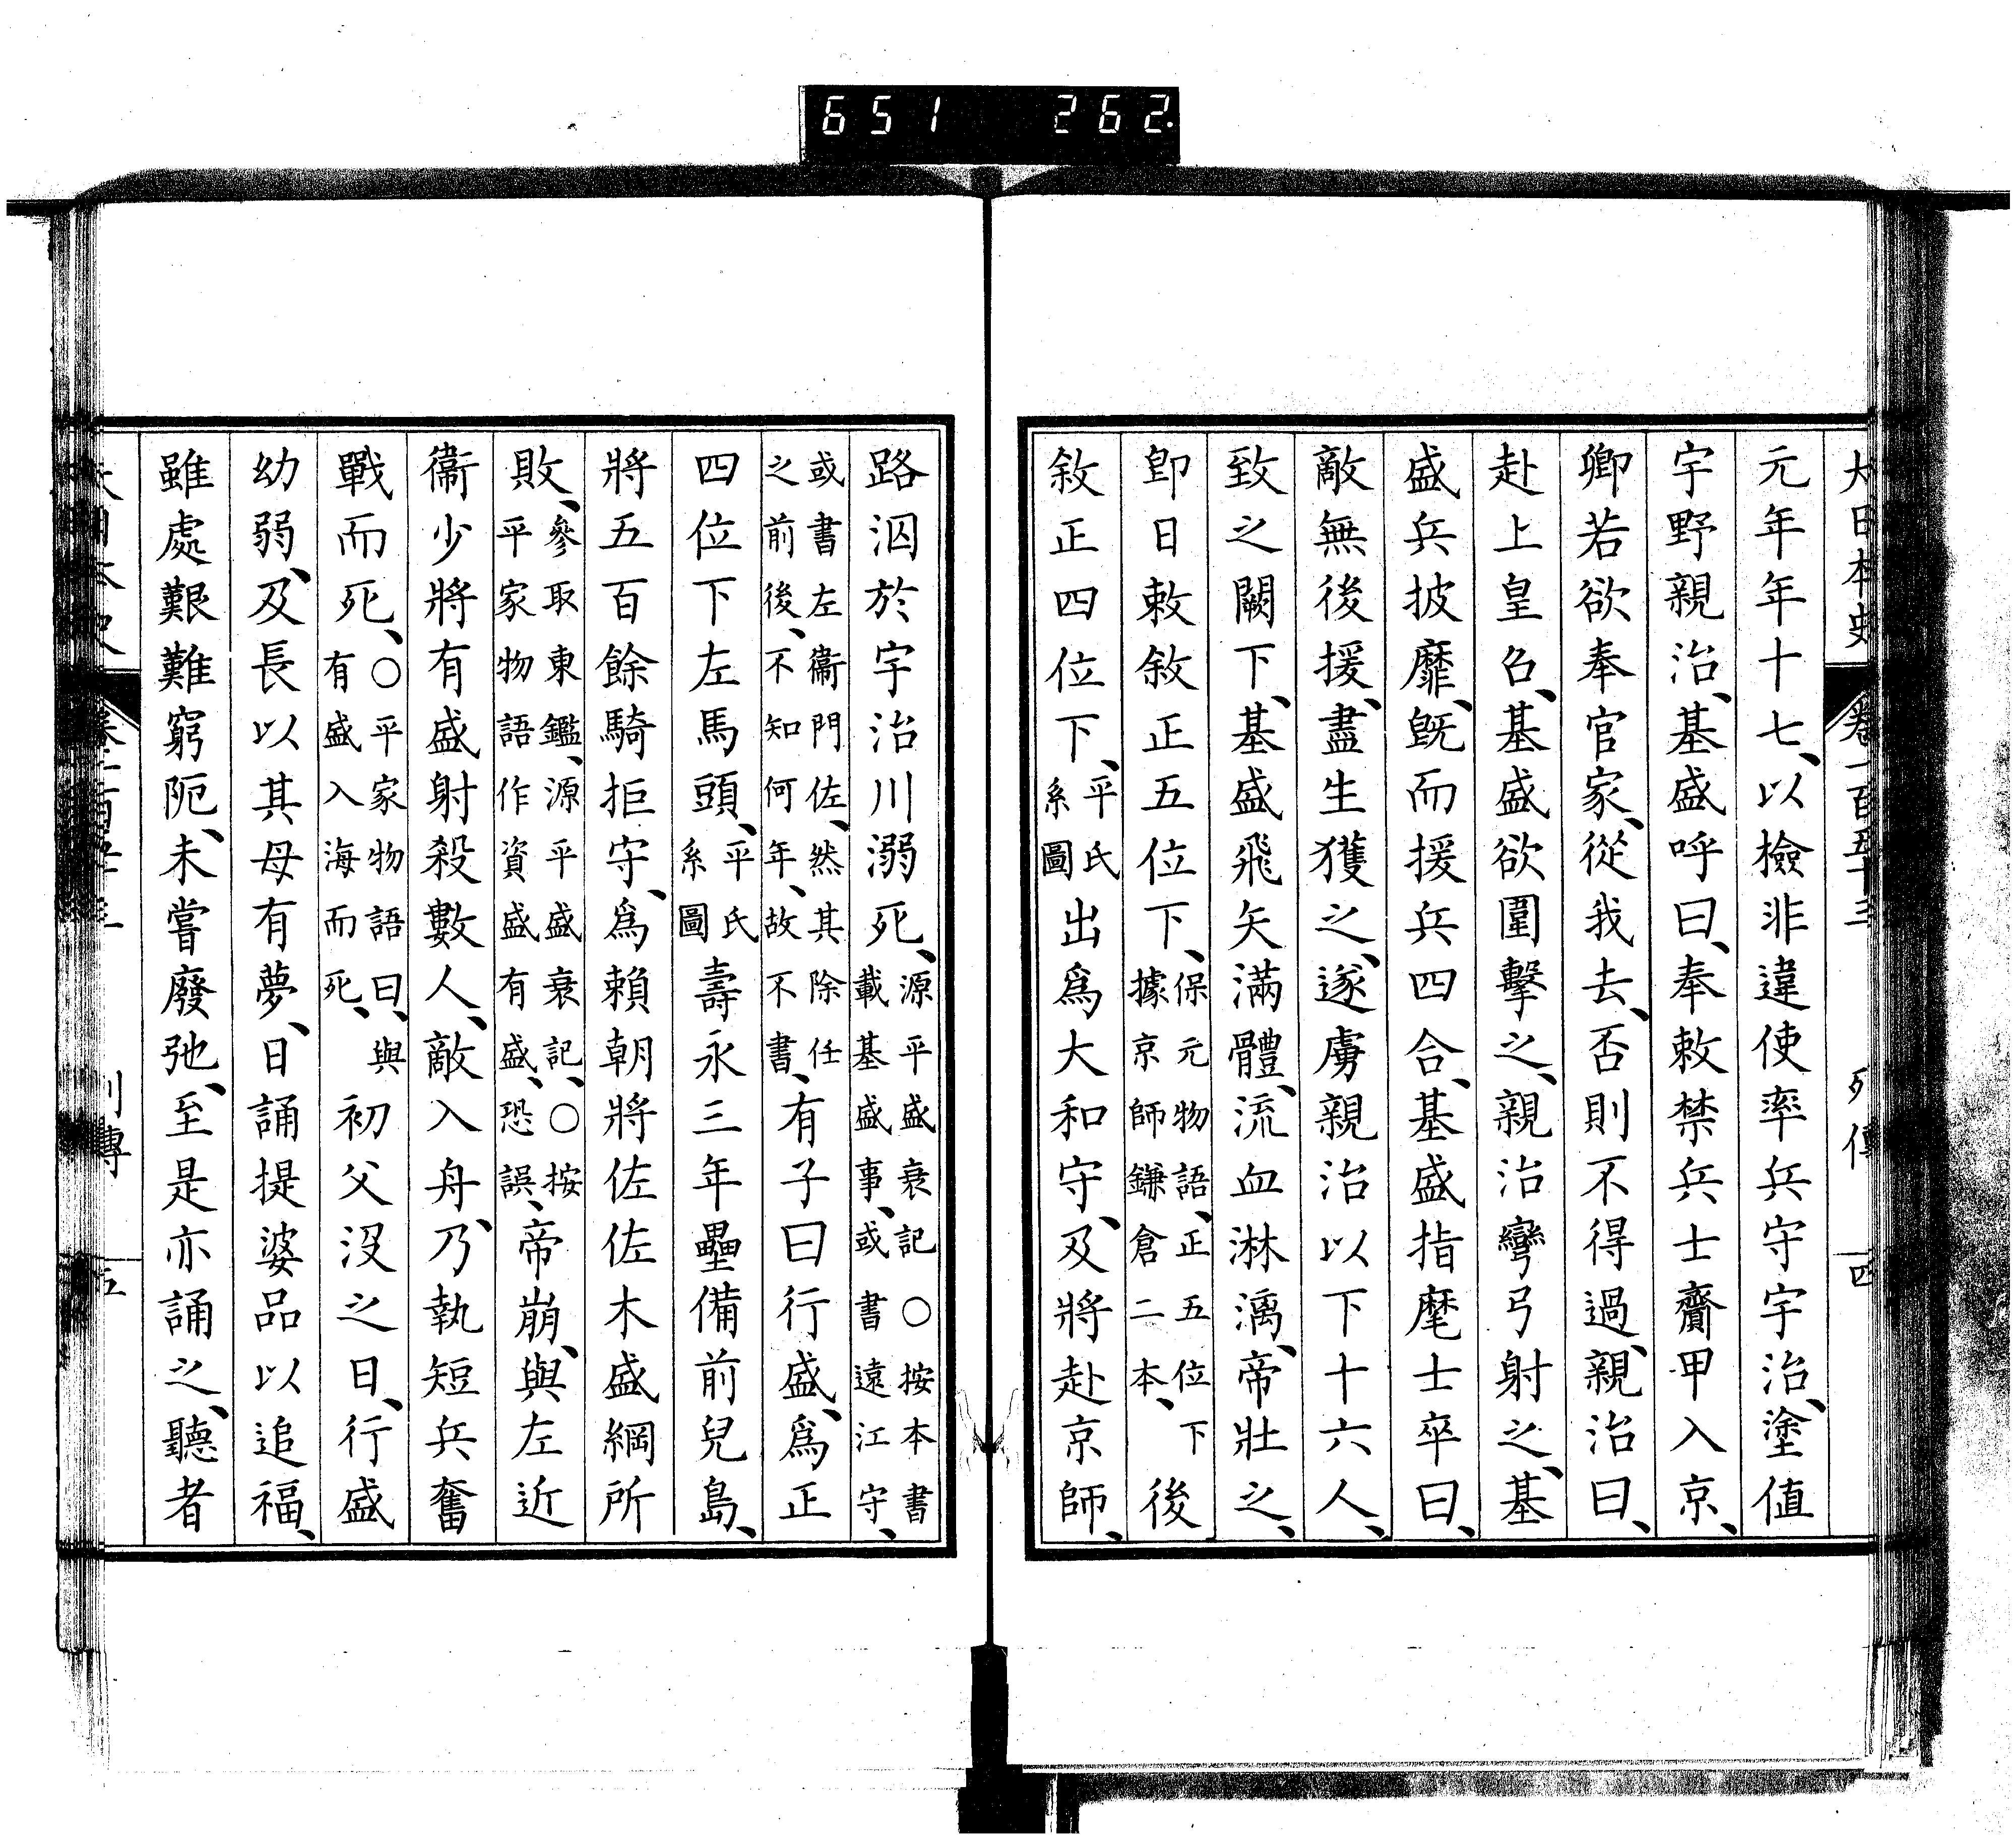 651 262.
大日本史 卷一百五十三 列傳 四
元年年十七、以檢非違使率兵守宇治、塗値
宇野親治、基盛呼曰、奉敕禁兵士齎甲入京、
卿若欲奉官家、從我去、否則不得過、親治曰、
赴上皇召、基盛欲圍擊之、親治彎弓射之、基
盛兵披靡、旣而援兵四合、基盛指麾士卒曰、
敵無後援、盡生獲之、遂虜親治以下十六人、
致之闕下、基盛飛矢滿體、流血淋漓、帝壯之、
卽日敕敘正五位下、保元物語、正五位下據京師鎌倉二本、後
敘正四位下、平氏系圖出爲大和守、及將赴京師、
路泅於宇治川溺死、源平盛衰記〇按本書載基盛事、或書遠江守、
或書左衞門佐、然其除任之前後、不知何年、故不書、有子曰行盛、爲正
四位下左馬頭、平氏系圖壽永三年壘備前兒島、
將五百餘騎拒守、爲賴朝將佐佐木盛綱所
敗、參取東鑑、源平盛衰記、〇按平家物語作資盛有盛、恐誤、帝崩、與左近
衞少將有盛射殺數人、敵入舟、乃執短兵奮
戰而死、〇平家物語曰、與有盛入海而死、初父沒之日、行盛
幼弱、及長以其母有夢、日誦提婆品以追福、
雖處艱難窮阨、未嘗廢弛、至是亦誦之、聽者
列傳 五